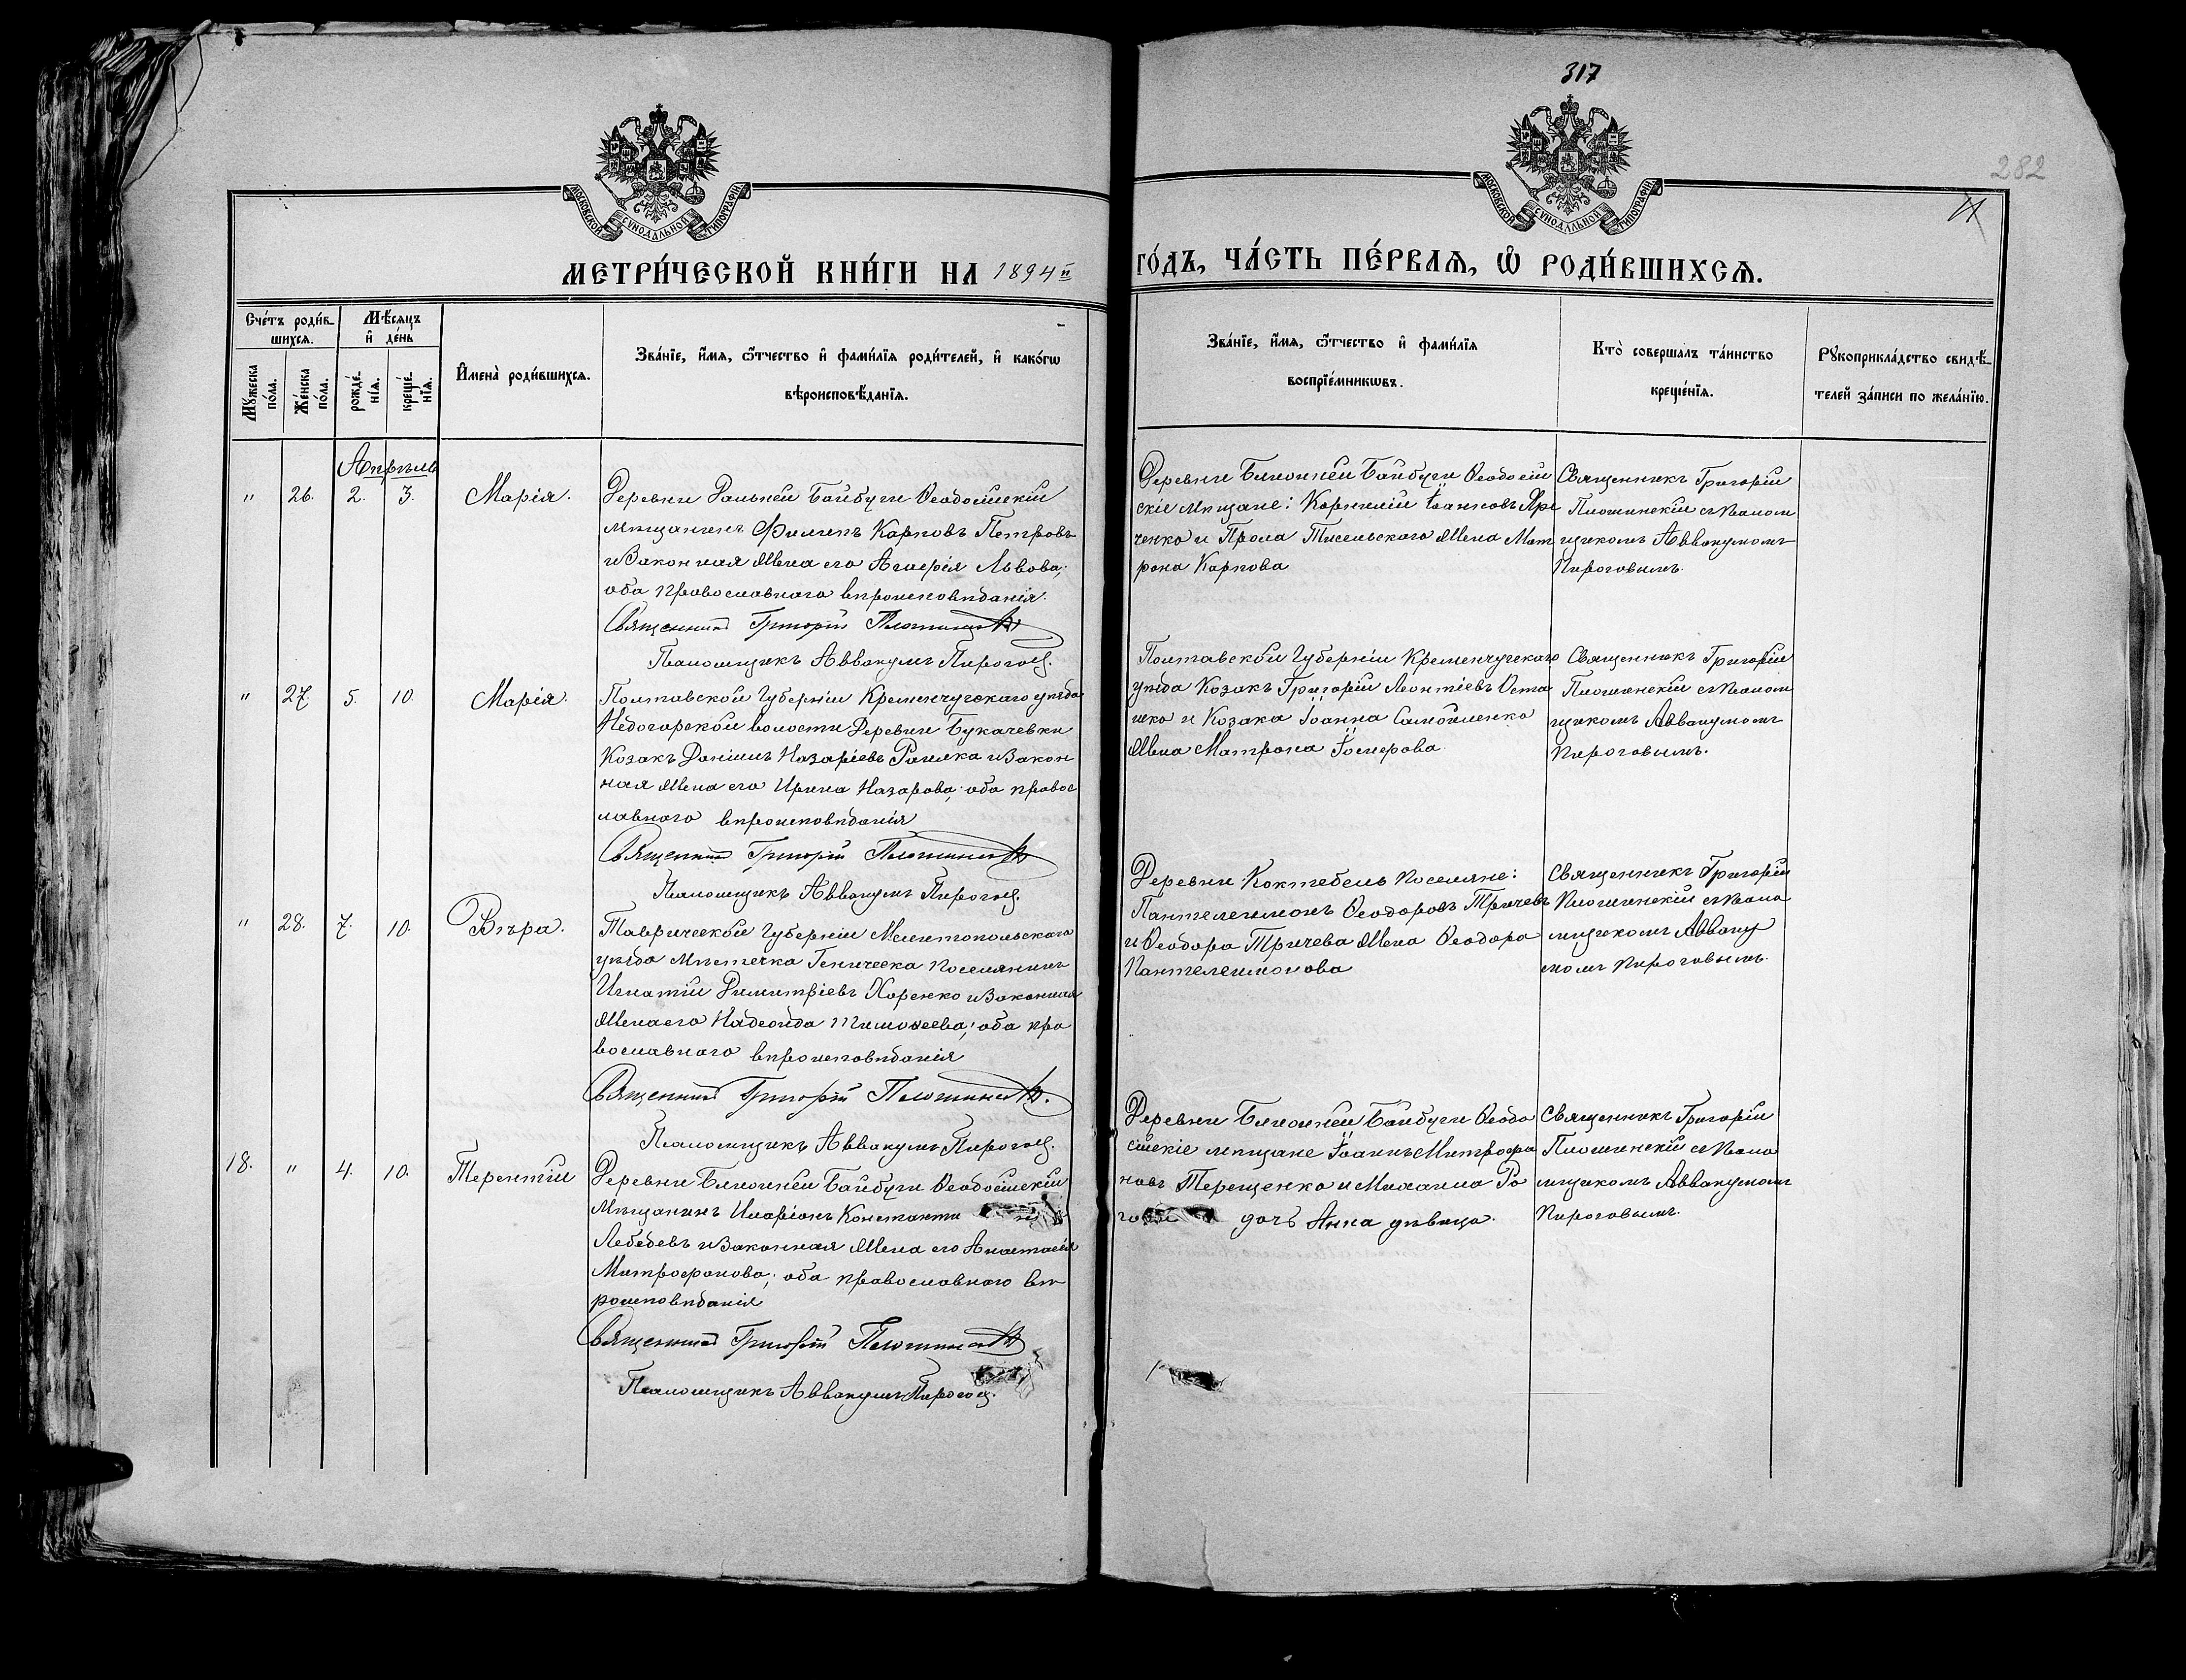 317
282
МОСКОВСКОЙ СѴНОДАЛЬНОЙ ТИПОГРАФІИ
МОСКОВСКОЙ СѴНОДАЛЬНОЙ ТИПОГРАФІИ
МЕТРИ́ЧЕСКОЙ КНИ́ГИ НА 1894й
ГО́ДЪ, ЧА́СТЬ ПЕ́РВАѦ, Ѡ҆ РОДИ́ВШИХСѦ.
Сче́тъ роди́в-
шихсѧ.
Мѣ́сѧцъ
и҆ де́нь
Мꙋ́жеска
по́ла.
Же́нска
по́ла.
рожде́-
нїѧ.
креще́-
нїѧ.
И҆мена̀ роди́вшихсѧ.
Зва́нїе, и҆́мѧ, ѻ҆́тчество и҆ фами́лїѧ роди́телей, и҆ како́гѡ
вѣроисповѣ́данїѧ.
Зва́нїе, и҆́мѧ, ѻ҆́тчество и҆ фами́лїѧ
воспрїе́мникѡвъ.
Кто̀ соверша́лъ та́инство
креще́нїѧ.
Рꙋкоприкла́дство свидѣ́-
телей за́писи по жела́нїю.
Апрѣль
" 26. 2. 3. Марія.
Деревни Дальней Байбуги Ѳеодосійскій
мѣщанинъ Филипъ Карповъ Петровъ
и Законная Жена его Гликерія Львова;
оба православнаго вѣроисповѣданія.
Священникъ Григорій Плошинскій
Псаломщикъ Аввакумъ Пироговъ.
Деревни Ближней Байбуги Ѳеодосій
скіе мѣщане: Корнилій Іоанновъ Яре
ченко и Прола Жена Мат
рона Карпова
Священникъ Григорій
Плошинскій съ Псалом
щикомъ Аввакумомъ
Пироговымъ.
" 27 5. 10. Марія.
Полтавской Губерніи Кременчугскаго уѣзда
Недогарской волости Деревни Букачевки
Козакъ Даніилъ Назаріевъ и Закон
ная Жена его Ирина Назарова; оба правос
лавнаго вѣроисповѣданія
Священникъ Григорій Плошинскій
Псаломщикъ Аввакумъ Пироговъ.
Полтавской Губерніи Кременчугскаго
уѣзда Козакъ Григорій Леонтіевъ Оста
шко и Козака Іоанна Самойленко
Жена Матрона
Священникъ Григорій
Плошинскій съ Псалом
щикомъ Аввакумомъ
Пироговымъ.
" 28. 7. 10. Вѣра.
Таврической Губерніи Мелитопольскаго
уѣзда Мѣстечка Геническа поселянинъ
Игнатій Димитріевъ Хоренко и Законная
Жена его Надежда Тимоѳеева; оба пра
вославнаго вѣроисповѣданія
Священникъ Григорій Плошинскій.
Псаломщикъ Аввакумъ Пироговъ.
Деревни Коктебель поселяне:
Пантелеимонъ Ѳеодоровъ Тричевъ
и Ѳеодора Тричева Жена Ѳеодора
Пантелеимонова
Священникъ Григорій
Плошинскій съ Псало
мщикомъ Аваку
момъ Пироговымъ.
18. " 4. 10. Терентій
Деревни Ближней Байбуги Ѳеодосійскій
Мѣщанинъ Иларіонъ Константи
Лебедевъ и Законная Жена его Анастасія
Митрофанова; оба православнаго вѣ
роисповѣданія
Священникъ Григорій Плошинскій
Псаломщикъ Аввакумъ Пироговъ.
Деревни Ближней Байбуги Ѳеодо
сійскіе мѣщане Іоаннъ Митрофа
новъ Терещенко и Михаила Ро
дочь Анна дѣвица.
Священникъ Григорій
Плошинскій съ Псало
мщикомъ Аввакумомъ
Пироговымъ.